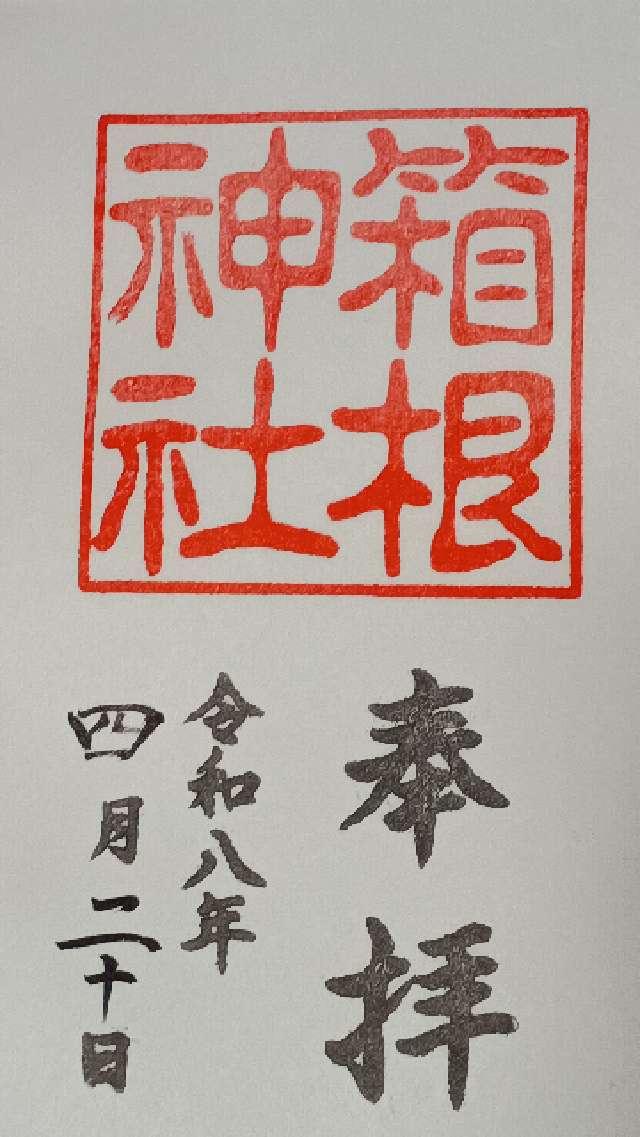 箱根
神社
奉拝
令和八年
四月二十日